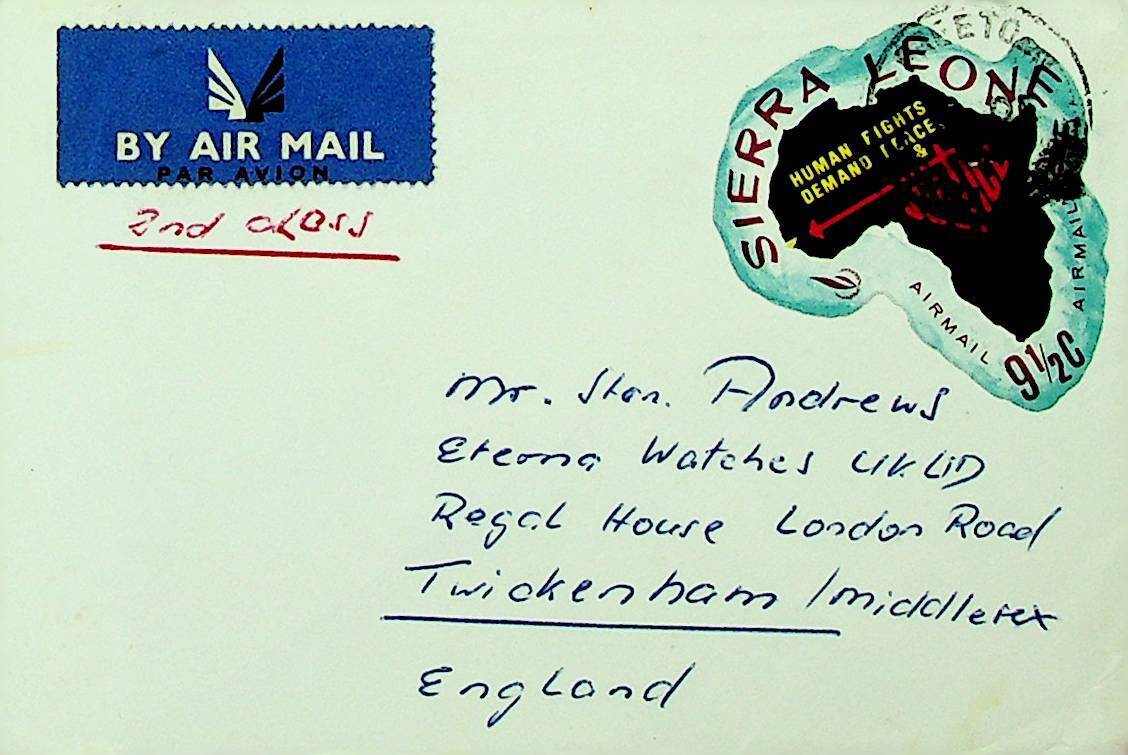 BY AIR MAIL
PAR AVION
2nd class
SIERRA LEONE
HUMAN RIGHTS
DEMAND PEACE
&
AIRMAIL
AIRMAIL
9½C
Mr. Stan. Andrews
Eterna Watches U.K. LTD
Regal House London Road
Twickenham / Middlesex
England